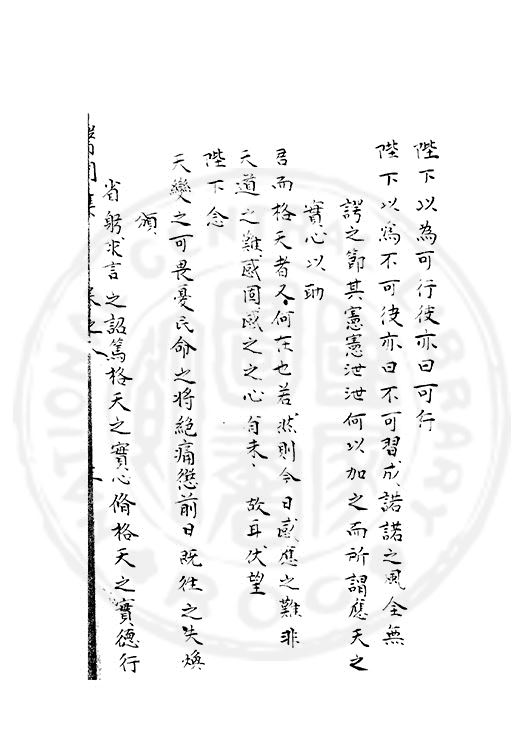 陛下以為可行彼亦曰可行
陛下以爲不可彼亦曰不可習成諾諾之風全無
諤之節其憲憲泄泄何以加之而所謂應天之
實心以動
君而格天者又何在也若然則今日感應之難非
天道之難感回感之之心自未、故耳伏望
陛下念
天變之可畏憂民命之將絶痛懲前日既往之失煥
頒
省躬求言之詔篤格天之實心脩格天之實德行